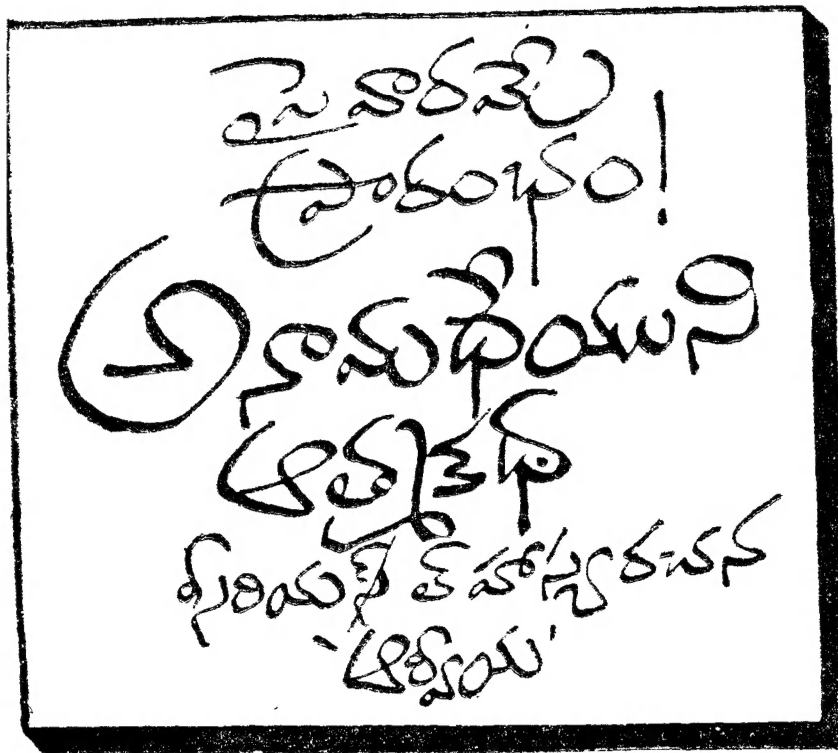 పై వారమే
ప్రారంభం!
అనామధేయుని
ఆత్మకథ
సీరియస్ హాస్యరచన
'ఆర్వీయ'